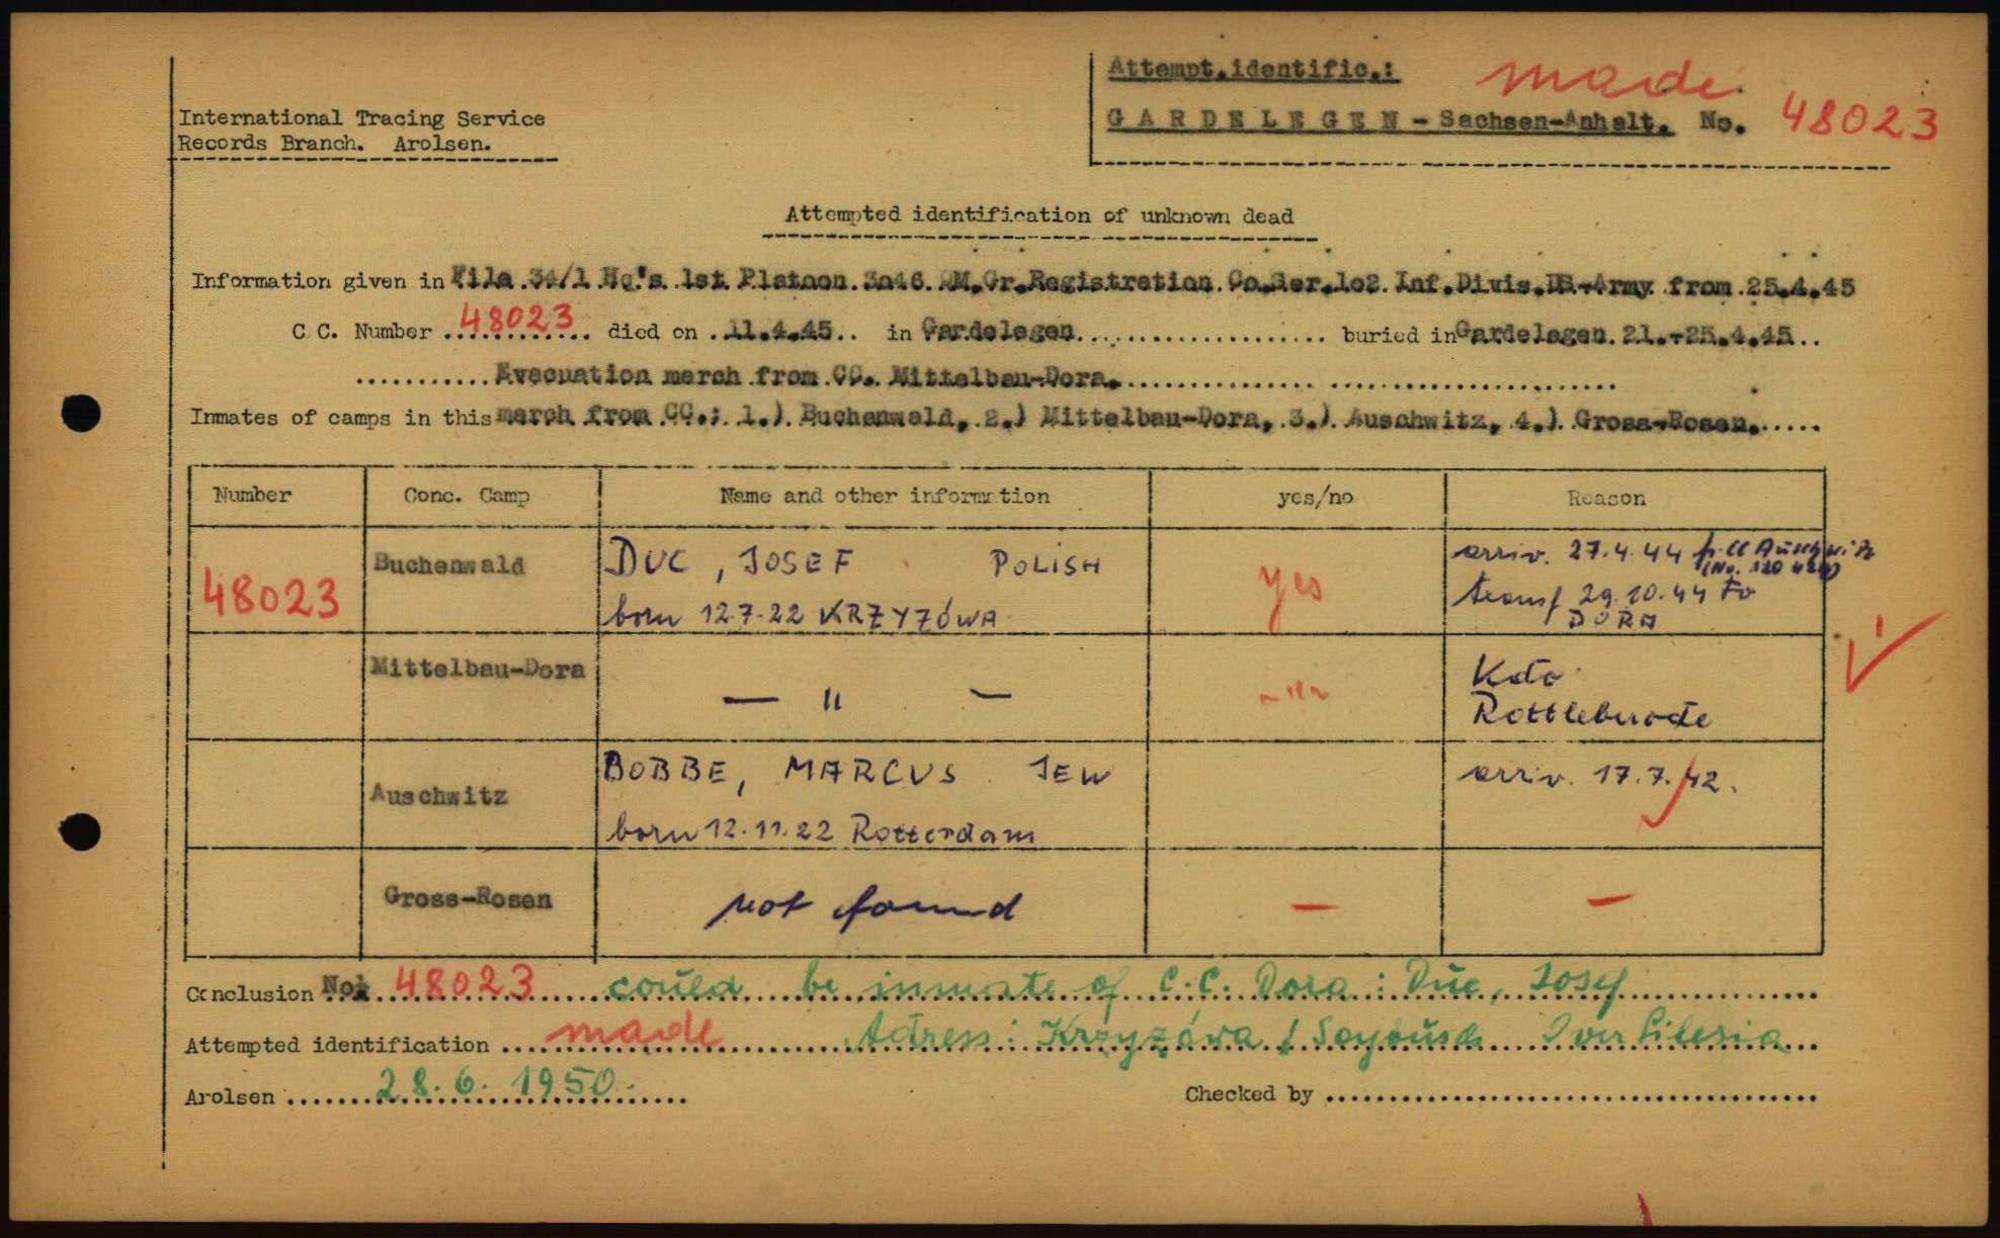 Attempt.identific.: made
International Tracing Service
GARDELEGEN - Sachsen-Anhalt. No. 48023
Records Branch. Arolsen.
Attempted identification of unknown dead
Information given in File 34/1 Hq's 1st Platoon 3046 QM.Gr.Registration Co.Ser.1o2 Inf.Divis.US-Army from 25.4.45
C C. Number 48023 died on 11.4.45 in Gardelegen buried in Gardelegen 21.-25.4.45
Evacuation march from CC. Mittelbau-Dora.
Inmates of camps in this march from CC.: 1.) Buchenwald, 2.) Mittelbau-Dora, 3.) Auschwitz, 4.) Gross-Rosen.
Number Conc. Camp Name and other information yes/no Reason
48023 Buchenwald DUC, JOSEF POLISH yes arriv. 27.4.44 fr. CC Auschwitz
born 12.7.22 KRZYZÓWA transf 29.10.44 to
DORA
Mittelbau-Dora — " — - " - Kdo
Rottleberode
Auschwitz BOBBE, MARCUS JEW arriv. 17.7.42.
born 12.11.22 Rotterdam
Gross-Rosen not found — —
Conclusion No. 48023 could be inmate of C.C. Dora: Duc, Josef
Attempted identification made Adress: Krzyzówa / Saybusch Over Silesia
Arolsen 28.6.1950. Checked by